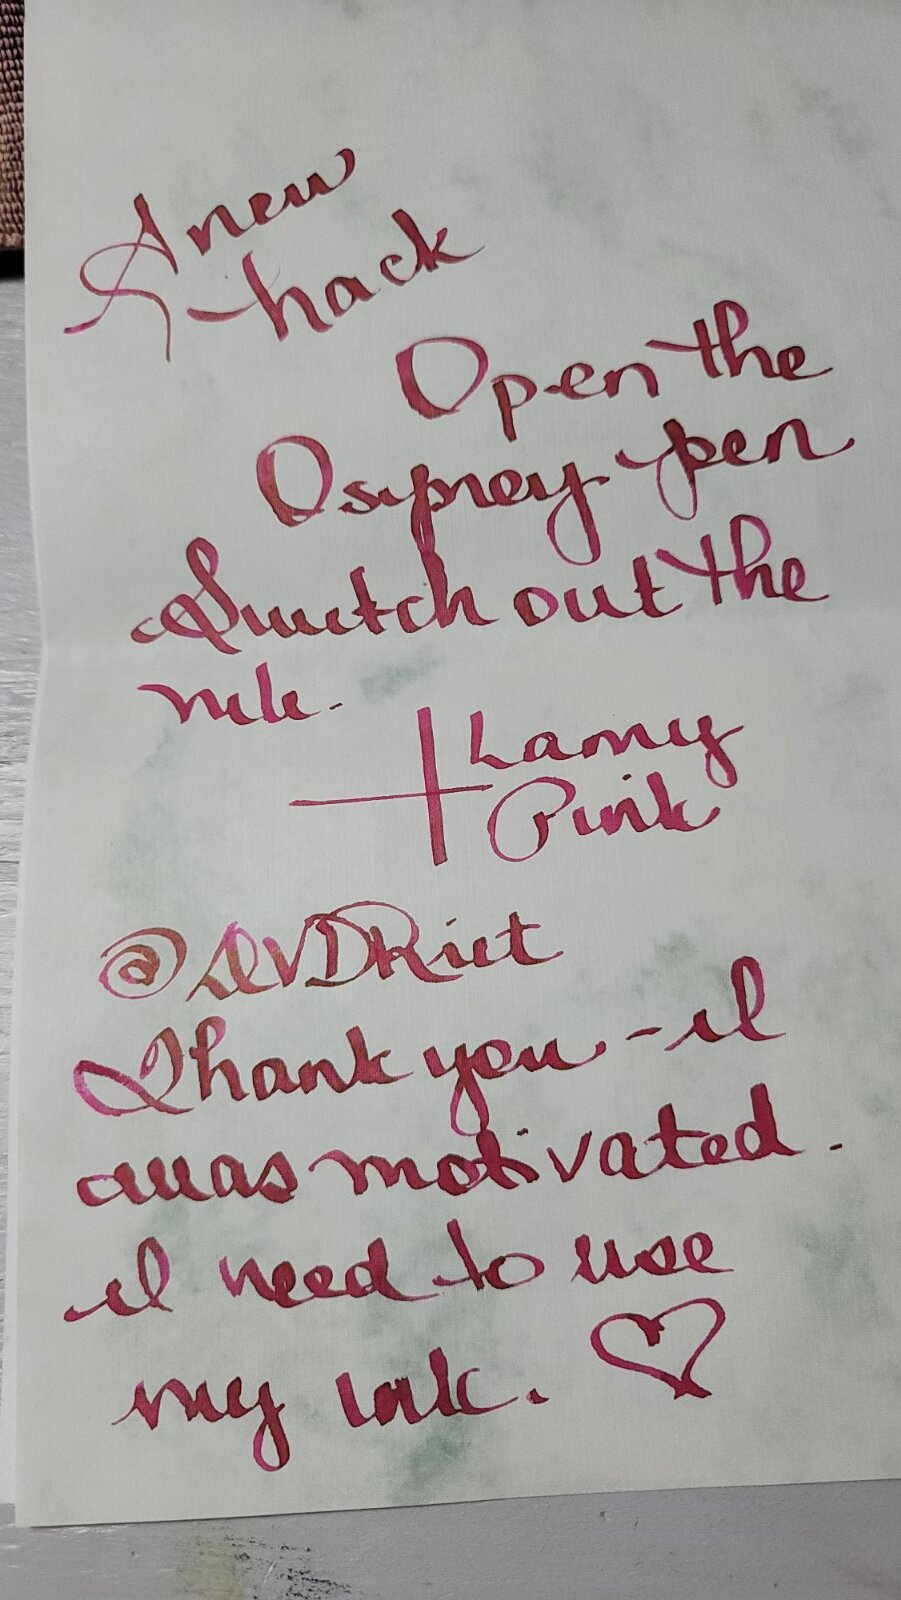 A new
hack
Open the
Osprey pen
Switch out the
nib.
Lamy
Pink
@DVDRiet
Thank you - I
was motivated.
I need to use
my ink. ♡